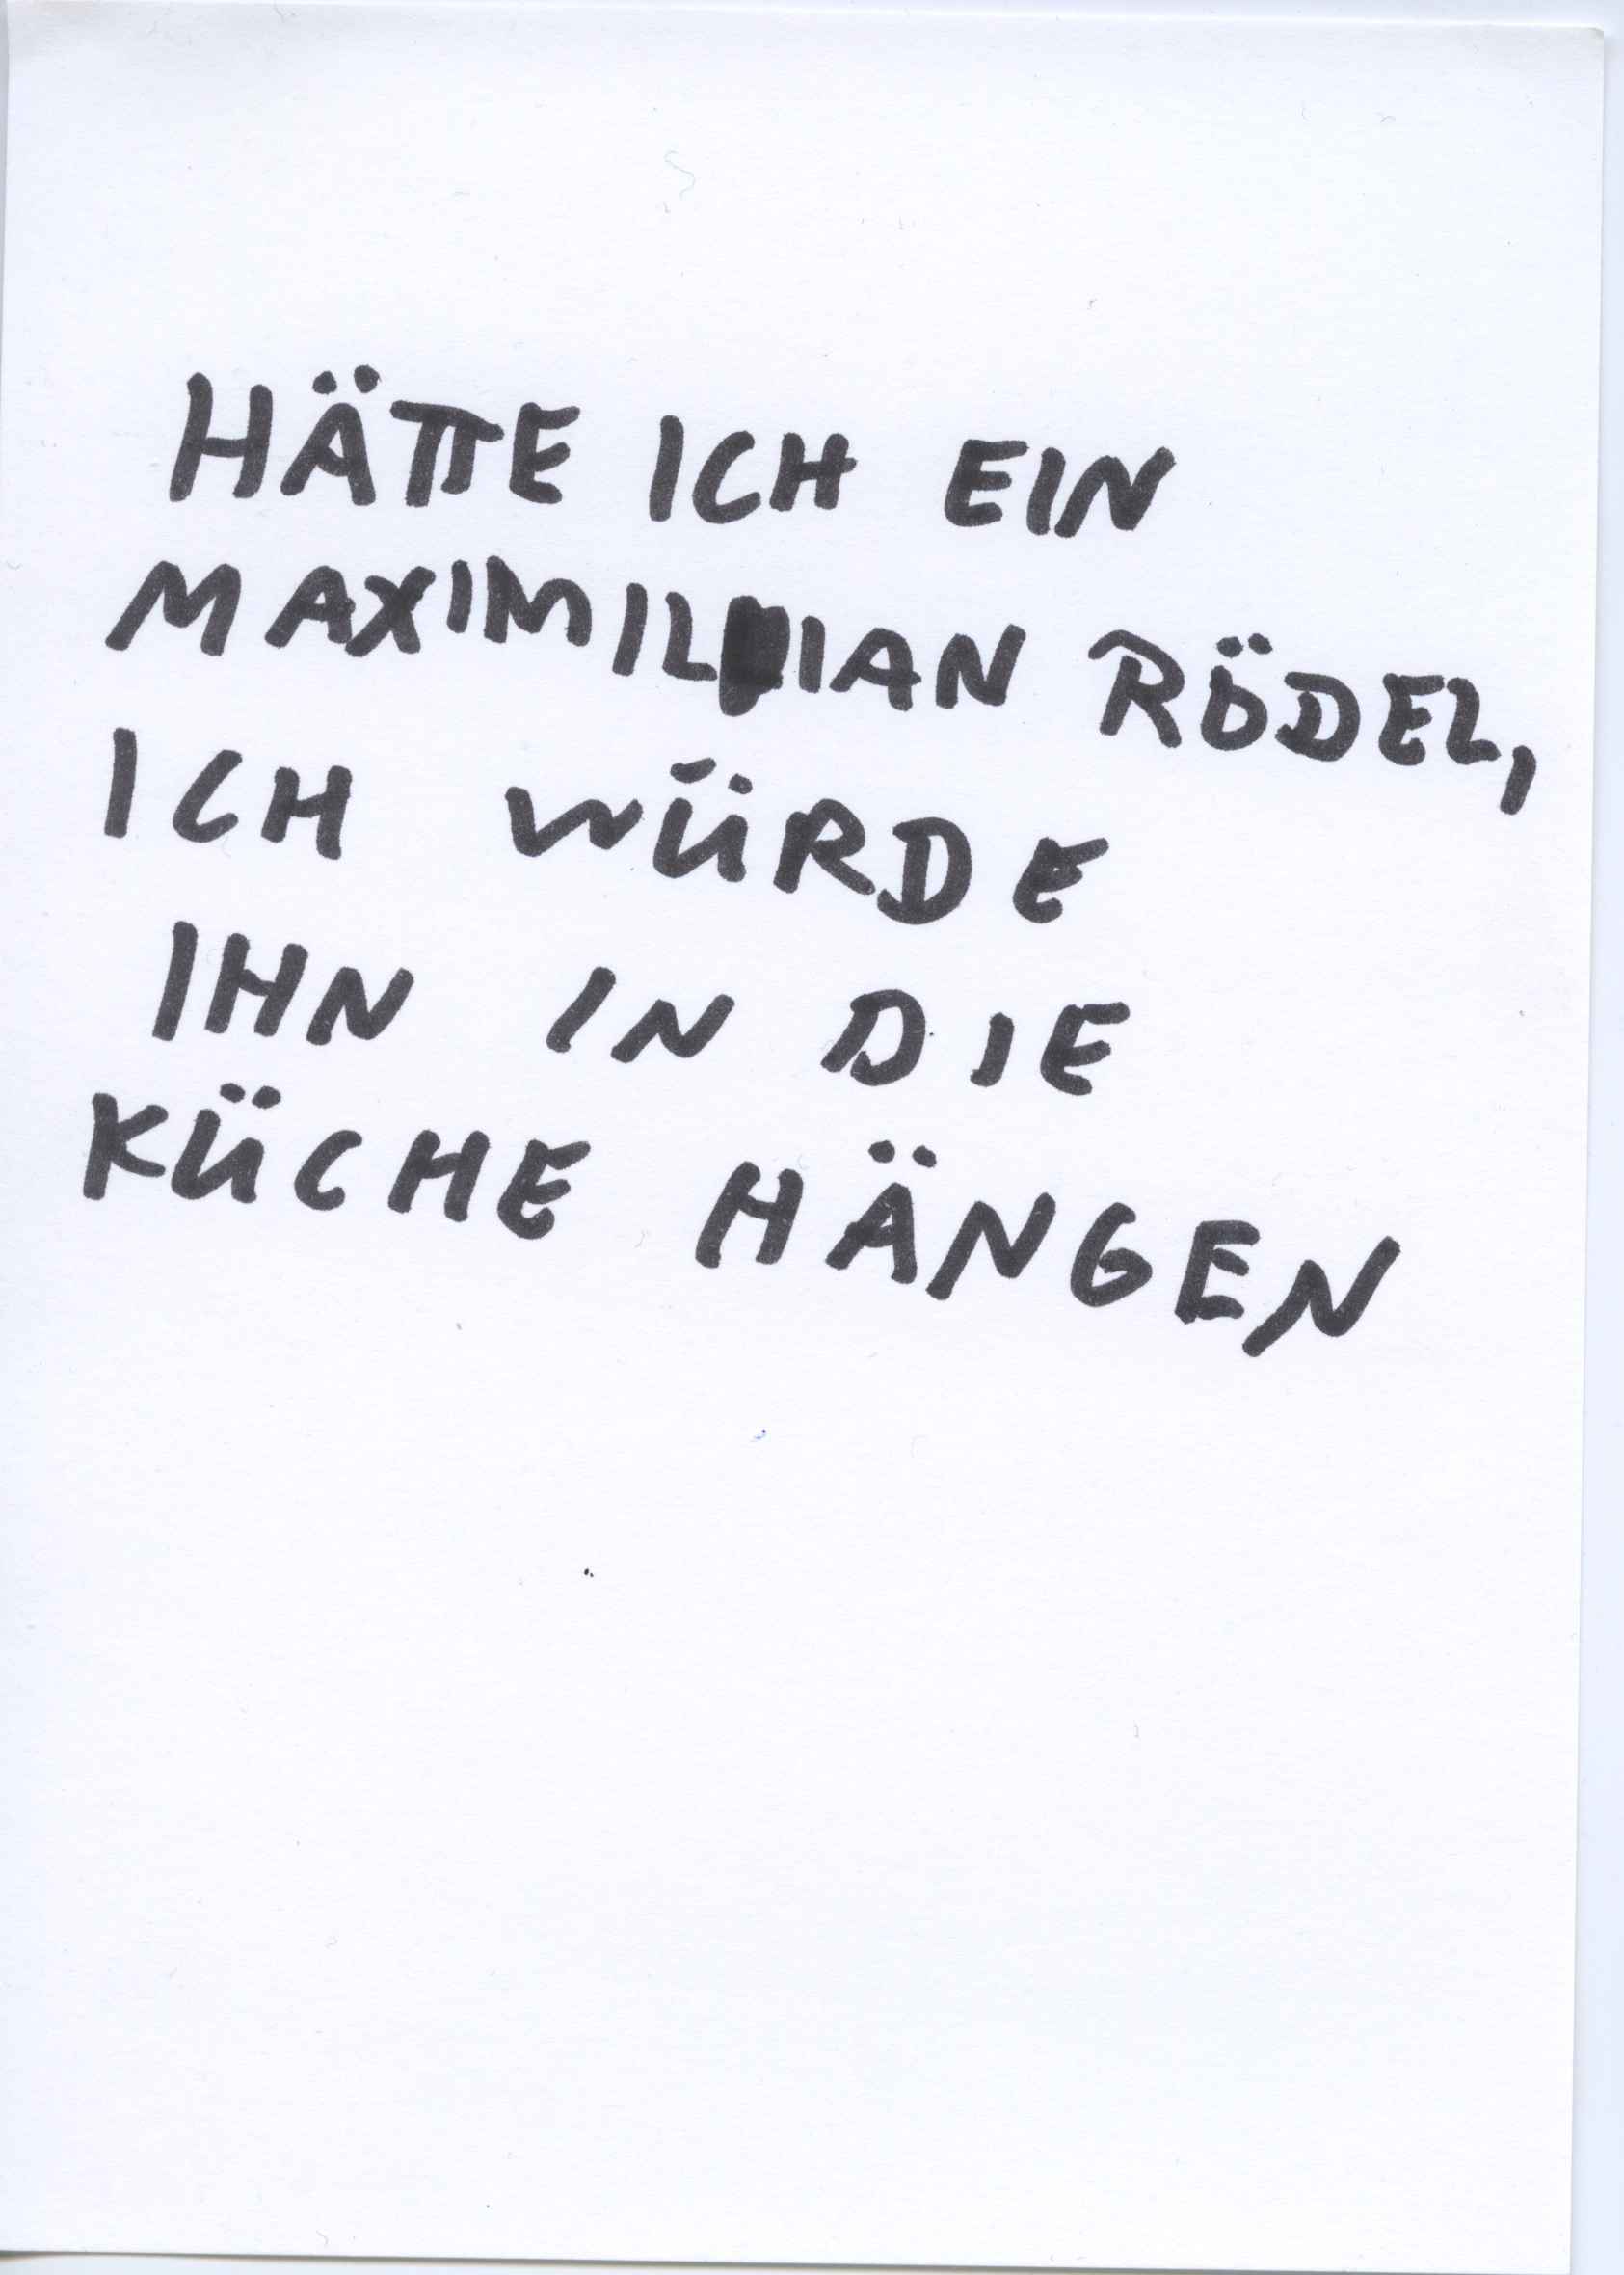 HÄTTE ICH EIN
MAXIMILIAN RÖDEL,
ICH WÜRDE
IHN IN DIE
KÜCHE HÄNGEN